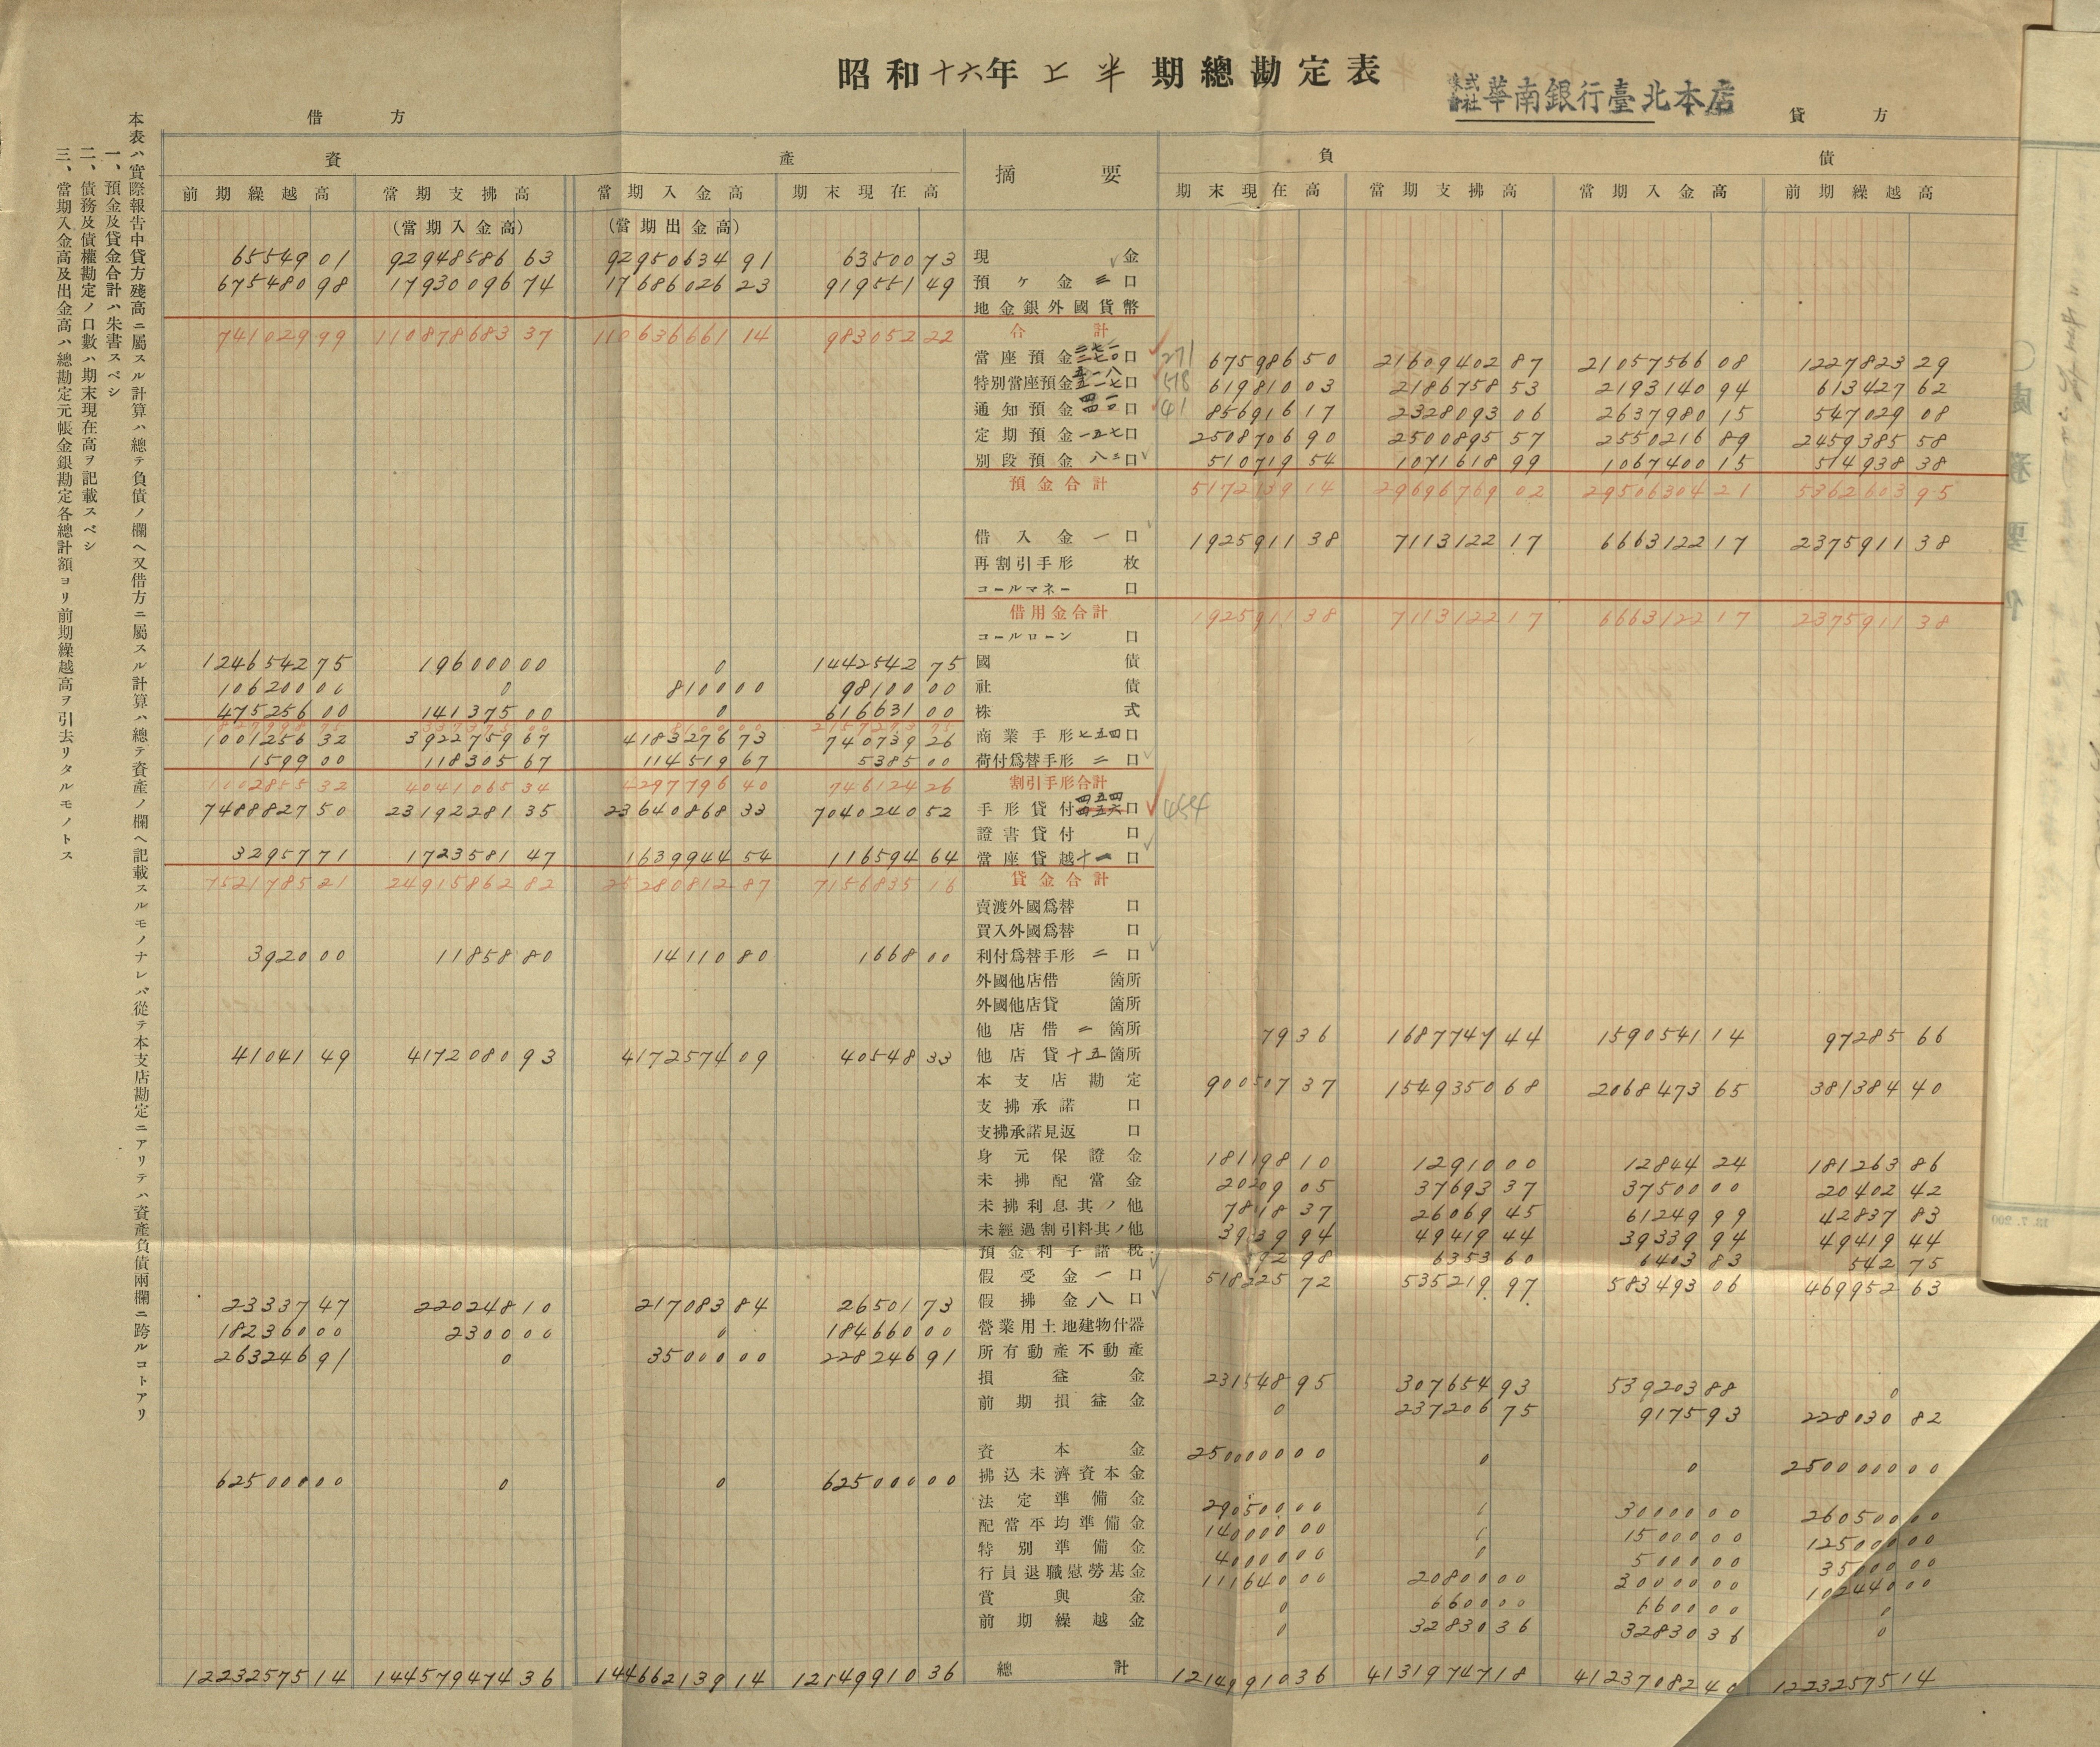 昭和十六年上半期總勘定表
株式會社華南銀行臺北本店
借方
貸方
資產
摘要
負債
前期繰越高 當期支拂高 當期入金高 期末現在高 期末現在高 當期支拂高 當期入金高 前期繰越高
(當期入金高) (當期出金高)
65549 01 92948586 63 92950634 91 63500 73 現金
675480 98 17930096 74 17686026 23 919551 49 預ケ金 三口
地金銀外國貨幣
741029 99 110878683 37 110636661 14 983052 22 合計
當座預金 二七一 口 271 675986 50 21609402 87 21057566 08 1227823 29
特別當座預金 五一八 口 518 619810 03 2186758 53 2193140 94 613427 62
通知預金 四一 口 41 856916 17 2328093 06 2637980 15 547029 08
定期預金 一五七口 2508706 90 2500895 57 2550216 89 2459385 58
別段預金 八二口 510719 54 1071618 99 1067400 15 514938 38
預金合計 5172139 14 29696769 02 29506304 21 5362603 95
借入金 一口 1925911 38 7113122 17 6663122 17 2375911 38
再割引手形 枚
コールマネー 口
借用金合計 1925911 38 7113122 17 6663122 17 2375911 38
コールローン 口
1246542 75 196000 00 0 1442542 75 國債
106200 00 0 8100 00 98100 00 社債
475256 00 141375 00 0 616631 00 株式
1001256 32 3922759 67 4183276 73 740739 26 商業手形 七五四口
1599 00 118305 67 114519 67 5385 00 荷付爲替手形 二口
1002855 32 4041065 34 4297796 40 746124 26 割引手形合計
7488827 50 23192281 35 23640868 33 7040240 52 手形貸付 四五四 口 454
證書貸付 口
32957 71 1723581 47 1639944 54 116594 64 當座貸越 十一口
7521785 21 24915862 82 25280812 87 7156835 16 貸金合計
賣渡外國爲替 口
買入外國爲替 口
3920 00 11858 80 14110 80 1668 00 利付爲替手形 二口
外國他店借 箇所
外國他店貸 箇所
他店借 二箇所 79 36 1687747 44 1590541 14 97285 66
41041 49 4172080 93 4172574 09 40548 33 他店貸 十五箇所
本支店勘定 900507 37 1549350 68 2068473 65 381384 40
支拂承諾 口
支拂承諾見返 口
身元保證金 181198 10 12910 00 12844 24 181263 86
未拂配當金 20209 05 37693 37 37500 00 20402 42
未拂利息其ノ他 78018 37 26069 45 61249 99 42837 83
未經過割引料其ノ他 39339 94 49419 44 39339 94 49419 44
預金利子諸稅 592 98 6353 60 6403 83 542 75
假受金 一口 518225 72 535219 97 583493 06 469952 63
23337 47 220248 10 217083 84 26501 73 假拂金 八口
182360 00 2300 00 0 184660 00 營業用土地建物什器
263246 91 0 35000 00 228246 91 所有動產不動產
損益金 231548 95 307654 93 539203 88 0
前期損益金 0 237206 75 9175 93 228030 82
資本金 2500000 00 0 0 2500000 00
625000 00 0 0 625000 00 拂込未濟資本金
法定準備金 290500 00 0 30000 00 260500 00
配當平均準備金 140000 00 0 15000 00 125000 00
特別準備金 40000 00 0 5000 00 35000 00
行員退職慰勞基金 111640 00 20800 00 30000 00 102440 00
賞與金 0 6600 00 6600 00 0
前期繰越金 0 32830 36 32830 36 0
12232575 14 144579474 36 144662139 14 12149910 36 總計 12149910 36 41319747 18 41237082 40 12232575 14
本表ハ實際報告中貸方殘高ニ屬スル計算ハ總テ負債ノ欄ヘ又借方ニ屬スル計算ハ總テ資產ノ欄ヘ記載スルモノナレバ從テ本支店勘定ニアリテハ資產負債兩欄ニ跨ルコトアリ
一、預金及貸金合計ハ朱書スベシ
二、債務及債權勘定ノ口數ハ期末現在高ヲ記載スベシ
三、當期入金高及出金高ハ總勘定元帳金銀勘定各總計額ヨリ前期繰越高ヲ引去リタルモノトス